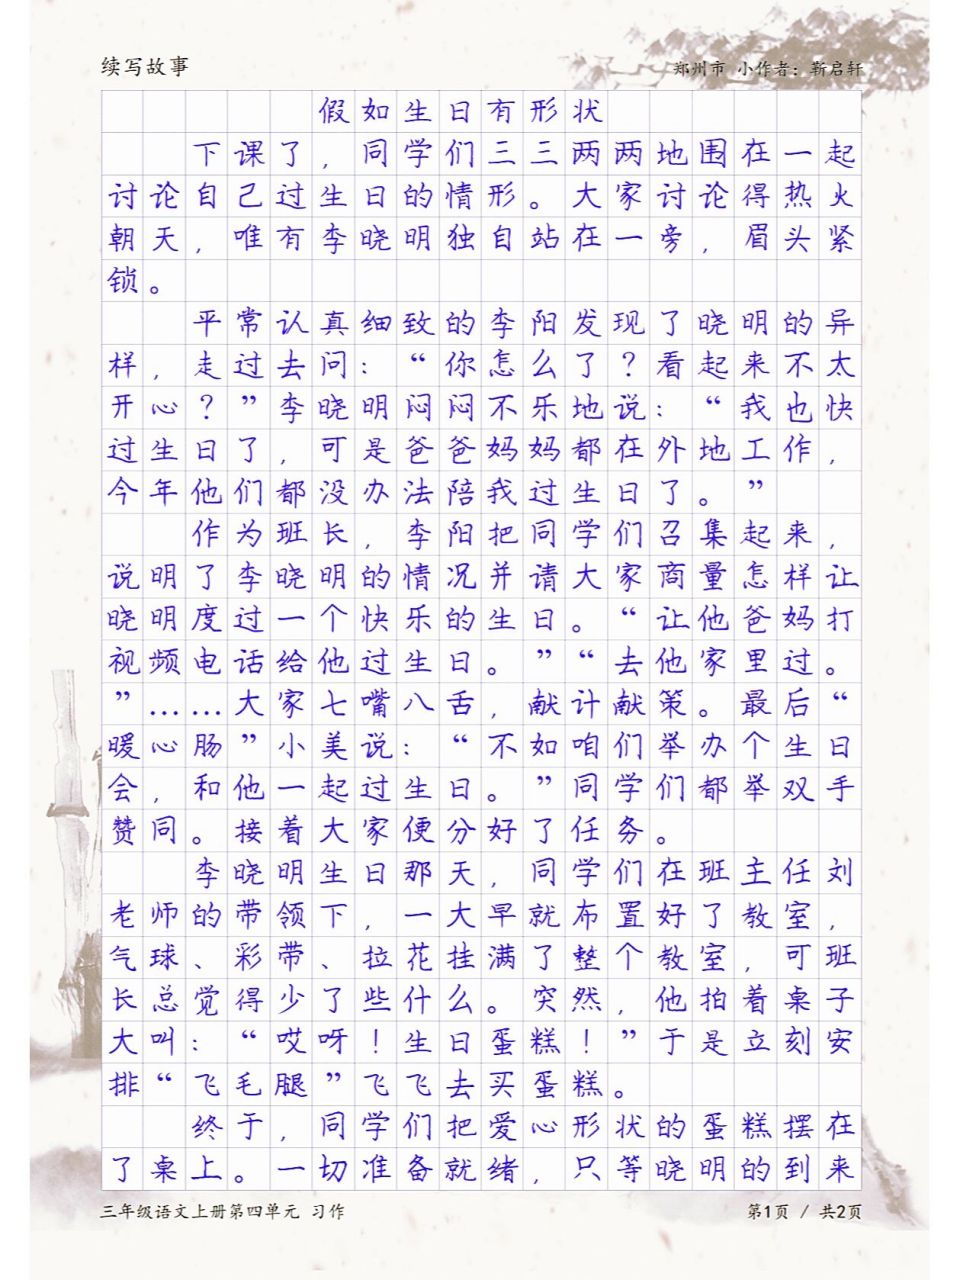 续写故事
郑州市 小作者：靳启轩
假如生日有形状
下课了，同学们三三两两地围在一起
讨论自己过生日的情形。大家讨论得热火
朝天，唯有李晓明独自站在一旁，眉头紧
锁。
平常认真细致的李阳发现了晓明的异
样，走过去问：“你怎么了？看起来不太
开心？”李晓明闷闷不乐地说：“我也快
过生日了，可是爸爸妈妈都在外地工作，
今年他们都没办法陪我过生日了。”
作为班长，李阳把同学们召集起来，
说明了李晓明的情况并请大家商量怎样让
晓明度过一个快乐的生日。“让他爸妈打
视频电话给他过生日。”“去他家里过。
”……大家七嘴八舌，献计献策。最后“
暖心肠”小美说：“不如咱们举办个生日
会，和他一起过生日。”同学们都举双手
赞同。接着大家便分好了任务。
李晓明生日那天，同学们在班主任刘
老师的带领下，一大早就布置好了教室，
气球、彩带、拉花挂满了整个教室，可班
长总觉得少了些什么。突然，他拍着桌子
大叫：“哎呀！生日蛋糕！”于是立刻安
排“飞毛腿”飞飞去买蛋糕。
终于，同学们把爱心形状的蛋糕摆在
了桌上。一切准备就绪，只等晓明的到来
三年级语文上册第四单元 习作
第1页 / 共2页